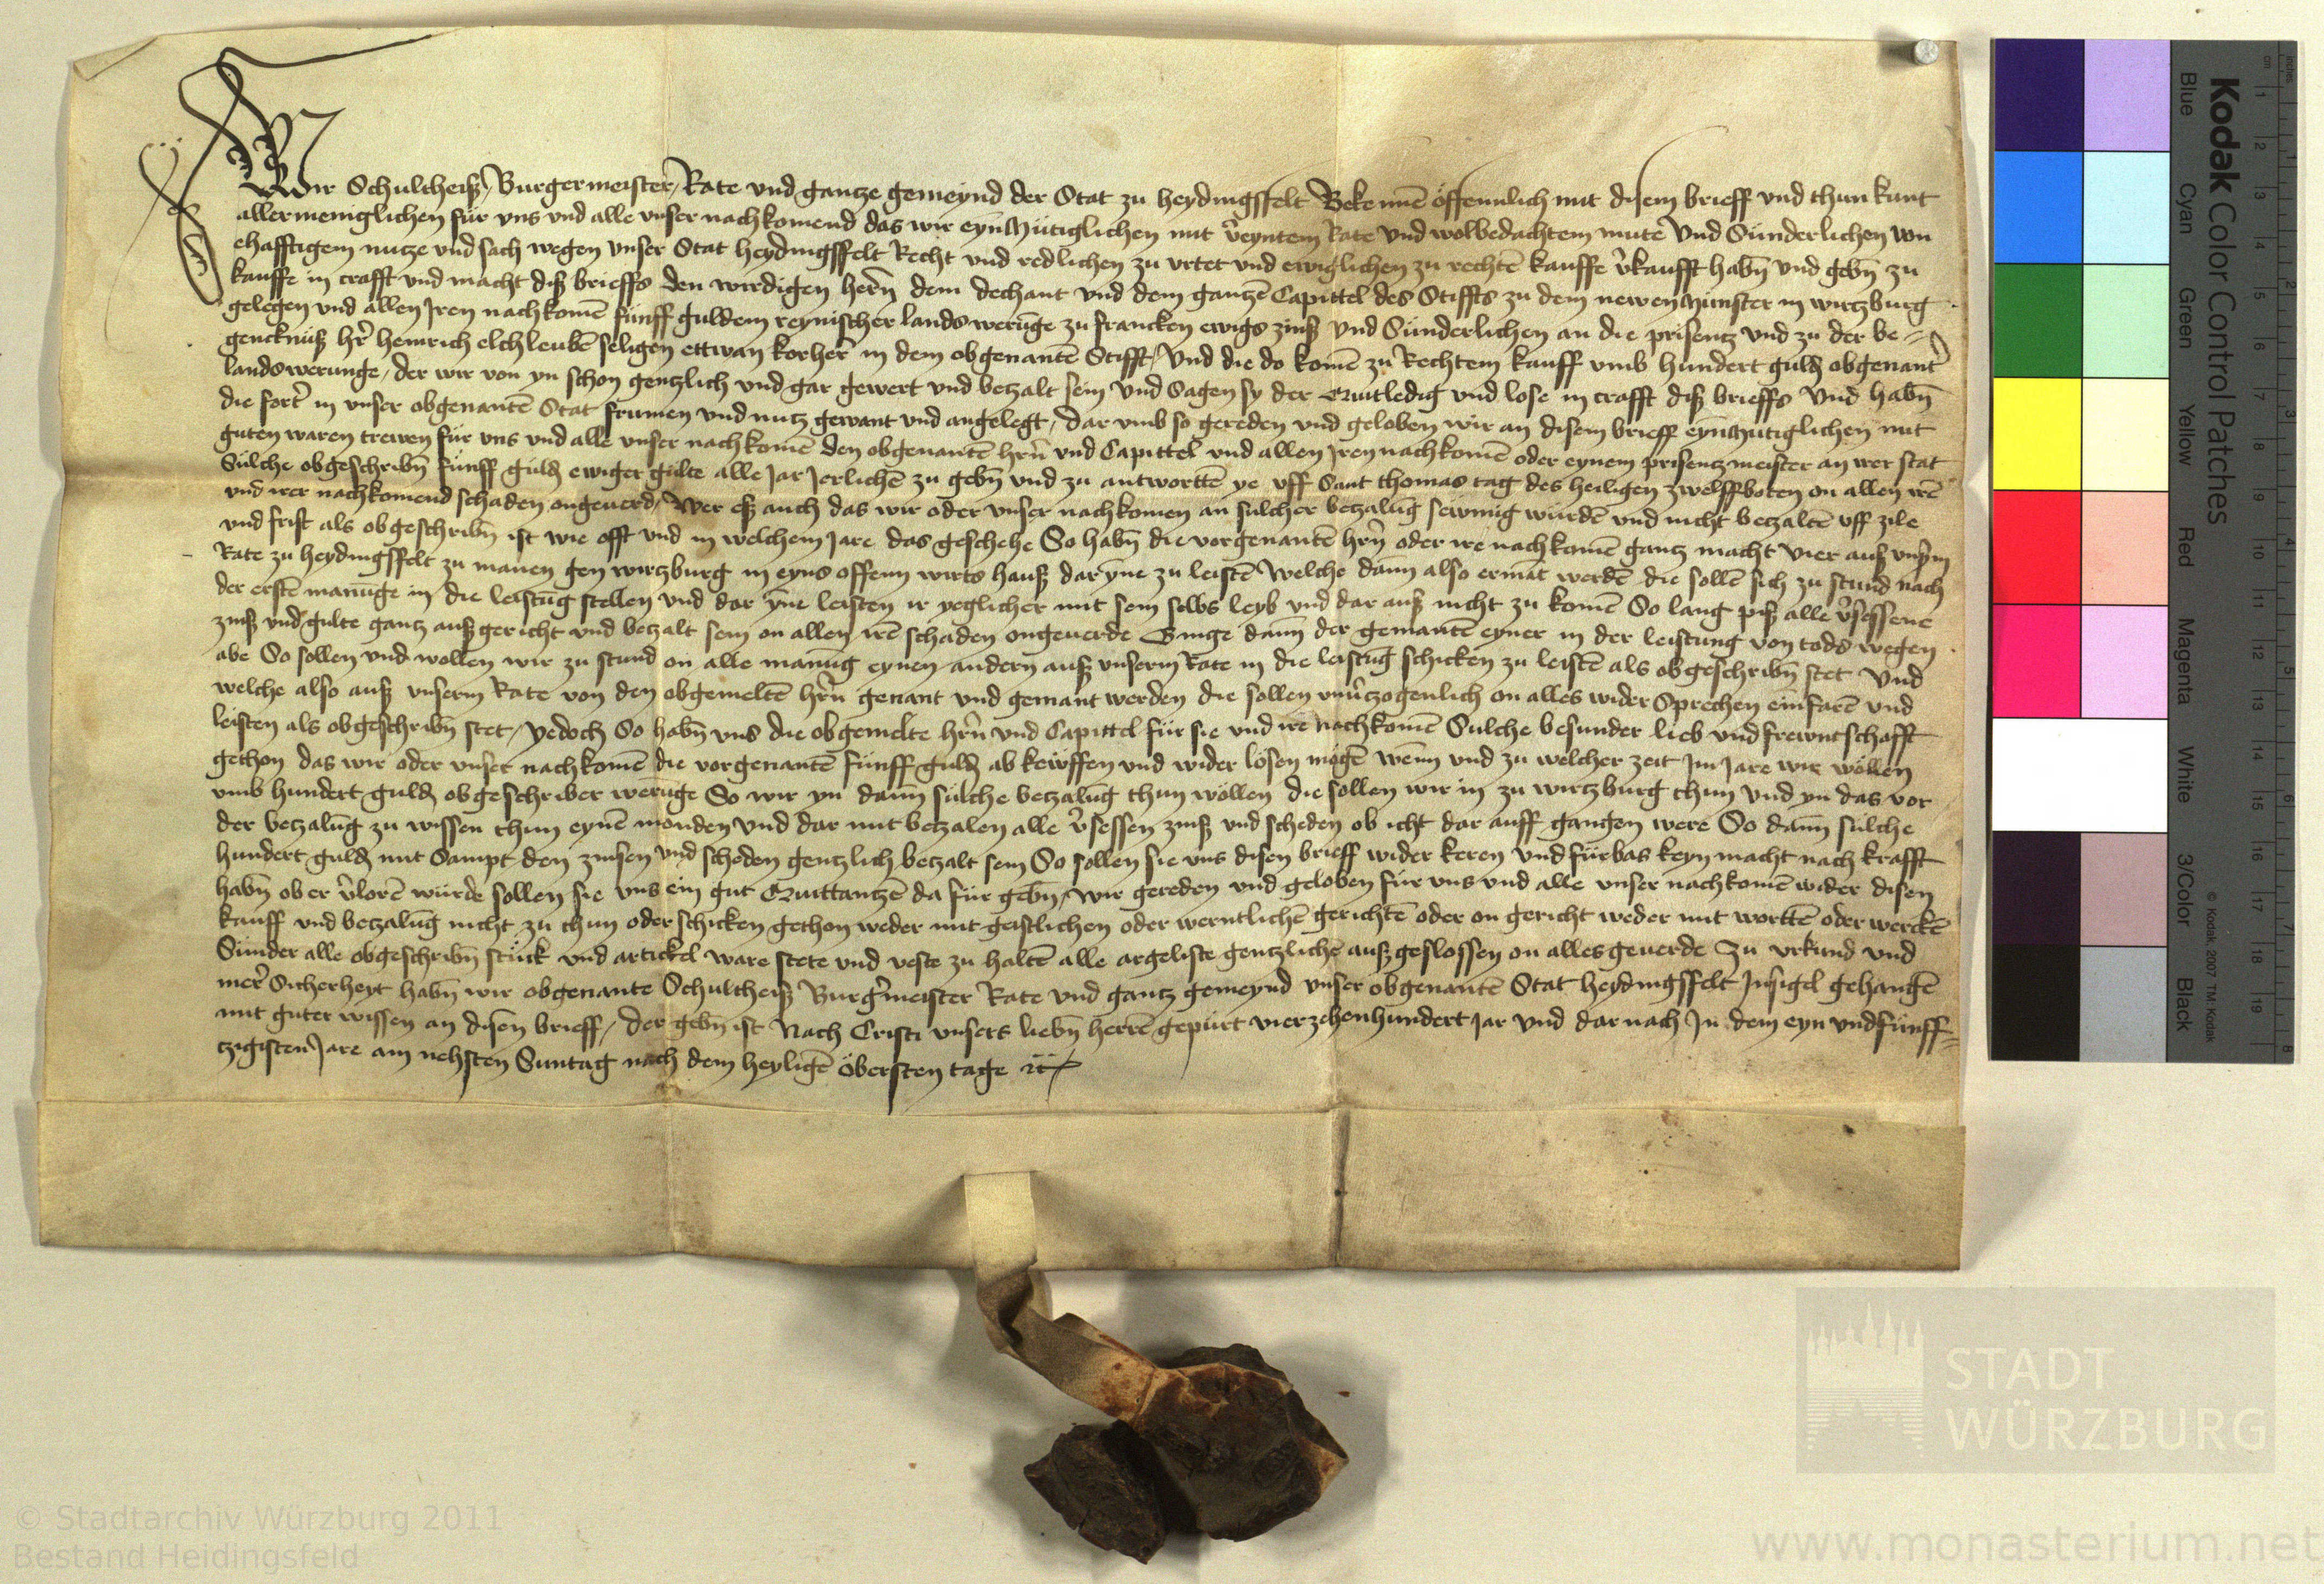 Wir Schultheiß / Burgermeister / Rate vnd gantze gemeynd der Stat zu heydingsfelt Bekennē öffennlich mit disem brieff vnd thun kunt
allermeniglichen für vns vnd alle vnser nachkomend das wir eynmütiglichen mit v̉eyntem Rate vnd wolbedachtem mute Vnd Sunderlichen von
ehafftigem nutze vnd sach wegen vnser Stat heydingsfelt Recht vnd redlichen zu vrtet vnd ewiglichen zu rechtē kauffe v̉kaufft habn̄ vnd gebn̄ zu
kauffe in crafft vnd macht diß brieffs den wirdigen hern̄ dem dechant vnd dem gantzē Capittel des Stiffts zu dem newenmünster in wirtzburg
gelegen vnd allen Iren nachkomē fünff guldem reynischer landswerūge zu francken ewigs zinß vnd Sünderlichen an die prisentz vnd zu der be=
gencknüß hr̉ heinrich elchleubē seligen ettwan korher̉ in dem obgenantē Stifft / Vnd die do komē zu Rechtem kauff vmb hundert guld obgenant̉
landswerunge / der wir von yn schon gentzlich vnd gar gewert vnd betzalt sein Vnd Sagen sy der Quitledig vnd lose in crafft diß brieffs Vnd habn̄
die fort̉ in vnser obgenantē Stat frumen vnd nutz gewant vnd angelegt / dar vmb so gereden vnd geloben wir an disem brieff eynmütiglichen mit
guten waren trewen für vns vnd alle vnser nachkomē den obgenantē hrn̉ vnd Capittel vnd allen Iren nachkomē oder eynem prisentzmeister an irer stat
Sülche obgeschribn̄ fünff guld ewiger gülte alle Jar Jerlichē zu gebn̄ vnd zu antwortē ye vff Sant thomas tag des heiligen zwelffboten on allen irē
vnd irer nachkomend schaden ongeuerd / Wer eß auch das wir oder vnser nachkomen an sulcher betzalūg sewmig würdē vnd nicht betzaltē vff zile
vnd frist als obgeschribn̄ ist wie offt vnd in welchem Jare das geschehe So habn̄ die vorgenantē hrn̉ oder ire nachkomē gantz macht vier auß vns̉m
Rate zu heydingsfelt zu manen gen wirtzburg in eyns offenn wirts hauß dar ȳne zu leistē Welche dann also ermāt werdē die sollē sich zu stund nach
der erstē manūge in die leistūg stellen vnd dar ȳne leisten ir yeglicher mit sein selbs leyb vnd dar auß nicht zu komē So lang piß alle v̉sessene
zinß vnd gulte gantz auß gericht vnd betzalt sein on allen irē schaden ongeuerde Ginge dann der gemantē eyner in der leistung von tods wegen
abe So sollen vnd wollen wir zu stund on alle manūg eynen andern auß vnserm Rate in die leistūg schicken zu leistē als obgeschribn̄ stet Vnd
welche also auß vnserm Rate von den obgemeltē hrn̉ genant vnd gemant werden die sollen vnủtzogenlich on alles wider Sprechen einfarē vnd
leisten als obgeschribn̄ stet / yedoch So habn̄ vns die obgemelte hrn̉ vnd Capittel für sie vnd ire nachkomē Sulche besunder lieb vnd frewntschafft
gethon das wir oder vnser nachkomē die vorgenantē fünff guld ab kewffen vnd wider lösen mögē wenn vnd zu welcher zeit Im Jare wir wöllen
vmb hundert guld obgeschriber werūge So wir yn dann sülche betzalūg thun wöllen die sollen wir in zu wirtzburg thun Vnd yn das vor
der betzalūg zu wissen thun eynē monden vnd dar mit betzalen alle v̉sessen zinß vnd scheden ob icht dar auff gangen were So dann sülche
hundert guld mit Sampt den zinsen vnd scheden gentzlich betzalt sein So sollen sie vns disen brieff wider keren vnd fürbas keyn macht nach krafft
habn̄ ob er v̉lorē würde sollen sie vns ein gut Quittantzē da für gebn̄ / Wir gereden vnd geloben für vns vnd alle vnser nachkomē wider disen
kauff vnd betzalūg nicht zu thun oder schicken gethon weder mit geistlichen oder werntlichē gerichtē oder on gericht weder mit wortē oder werckē
Sunder alle obgeschribn̄ stück vnd artickel ware stete vnd veste zu haltē alle argeliste gentzlichē außgeslossen on alles geuerde Zu vrkund vnd
mer̉ Sicherheyt habn̄ wir obgenante Schultheiß Burg̉meister Rate vnd gantz gemeynd vnser obgenantē Stat heydingsfelt Insigel gehangē
mit guter wissen an disen brieff / der gebn̄ ist Nach Cristi vnsers liebn̄ herrē gepürt vierzehenhundert Jar vnd dar nach In dem eyn vnd fünff=
tzigisten Jare am nehsten Suntag nach dem heyligē öbersten tage ꝛc
Kodak Color Control Patches
© Kodak, 2007 TM: Kodak
Blue Cyan Green Yellow Red Magenta White 3/Color Black
cm 1 2 3 4 5 6 7 8 9 10 11 12 13 14 15 16 17 18 19
inches 1 2 3 4 5 6 7 8
STADT
WÜRZBURG
© Stadtarchiv Würzburg 2011
Bestand Heidingsfeld
www.monasterium.net